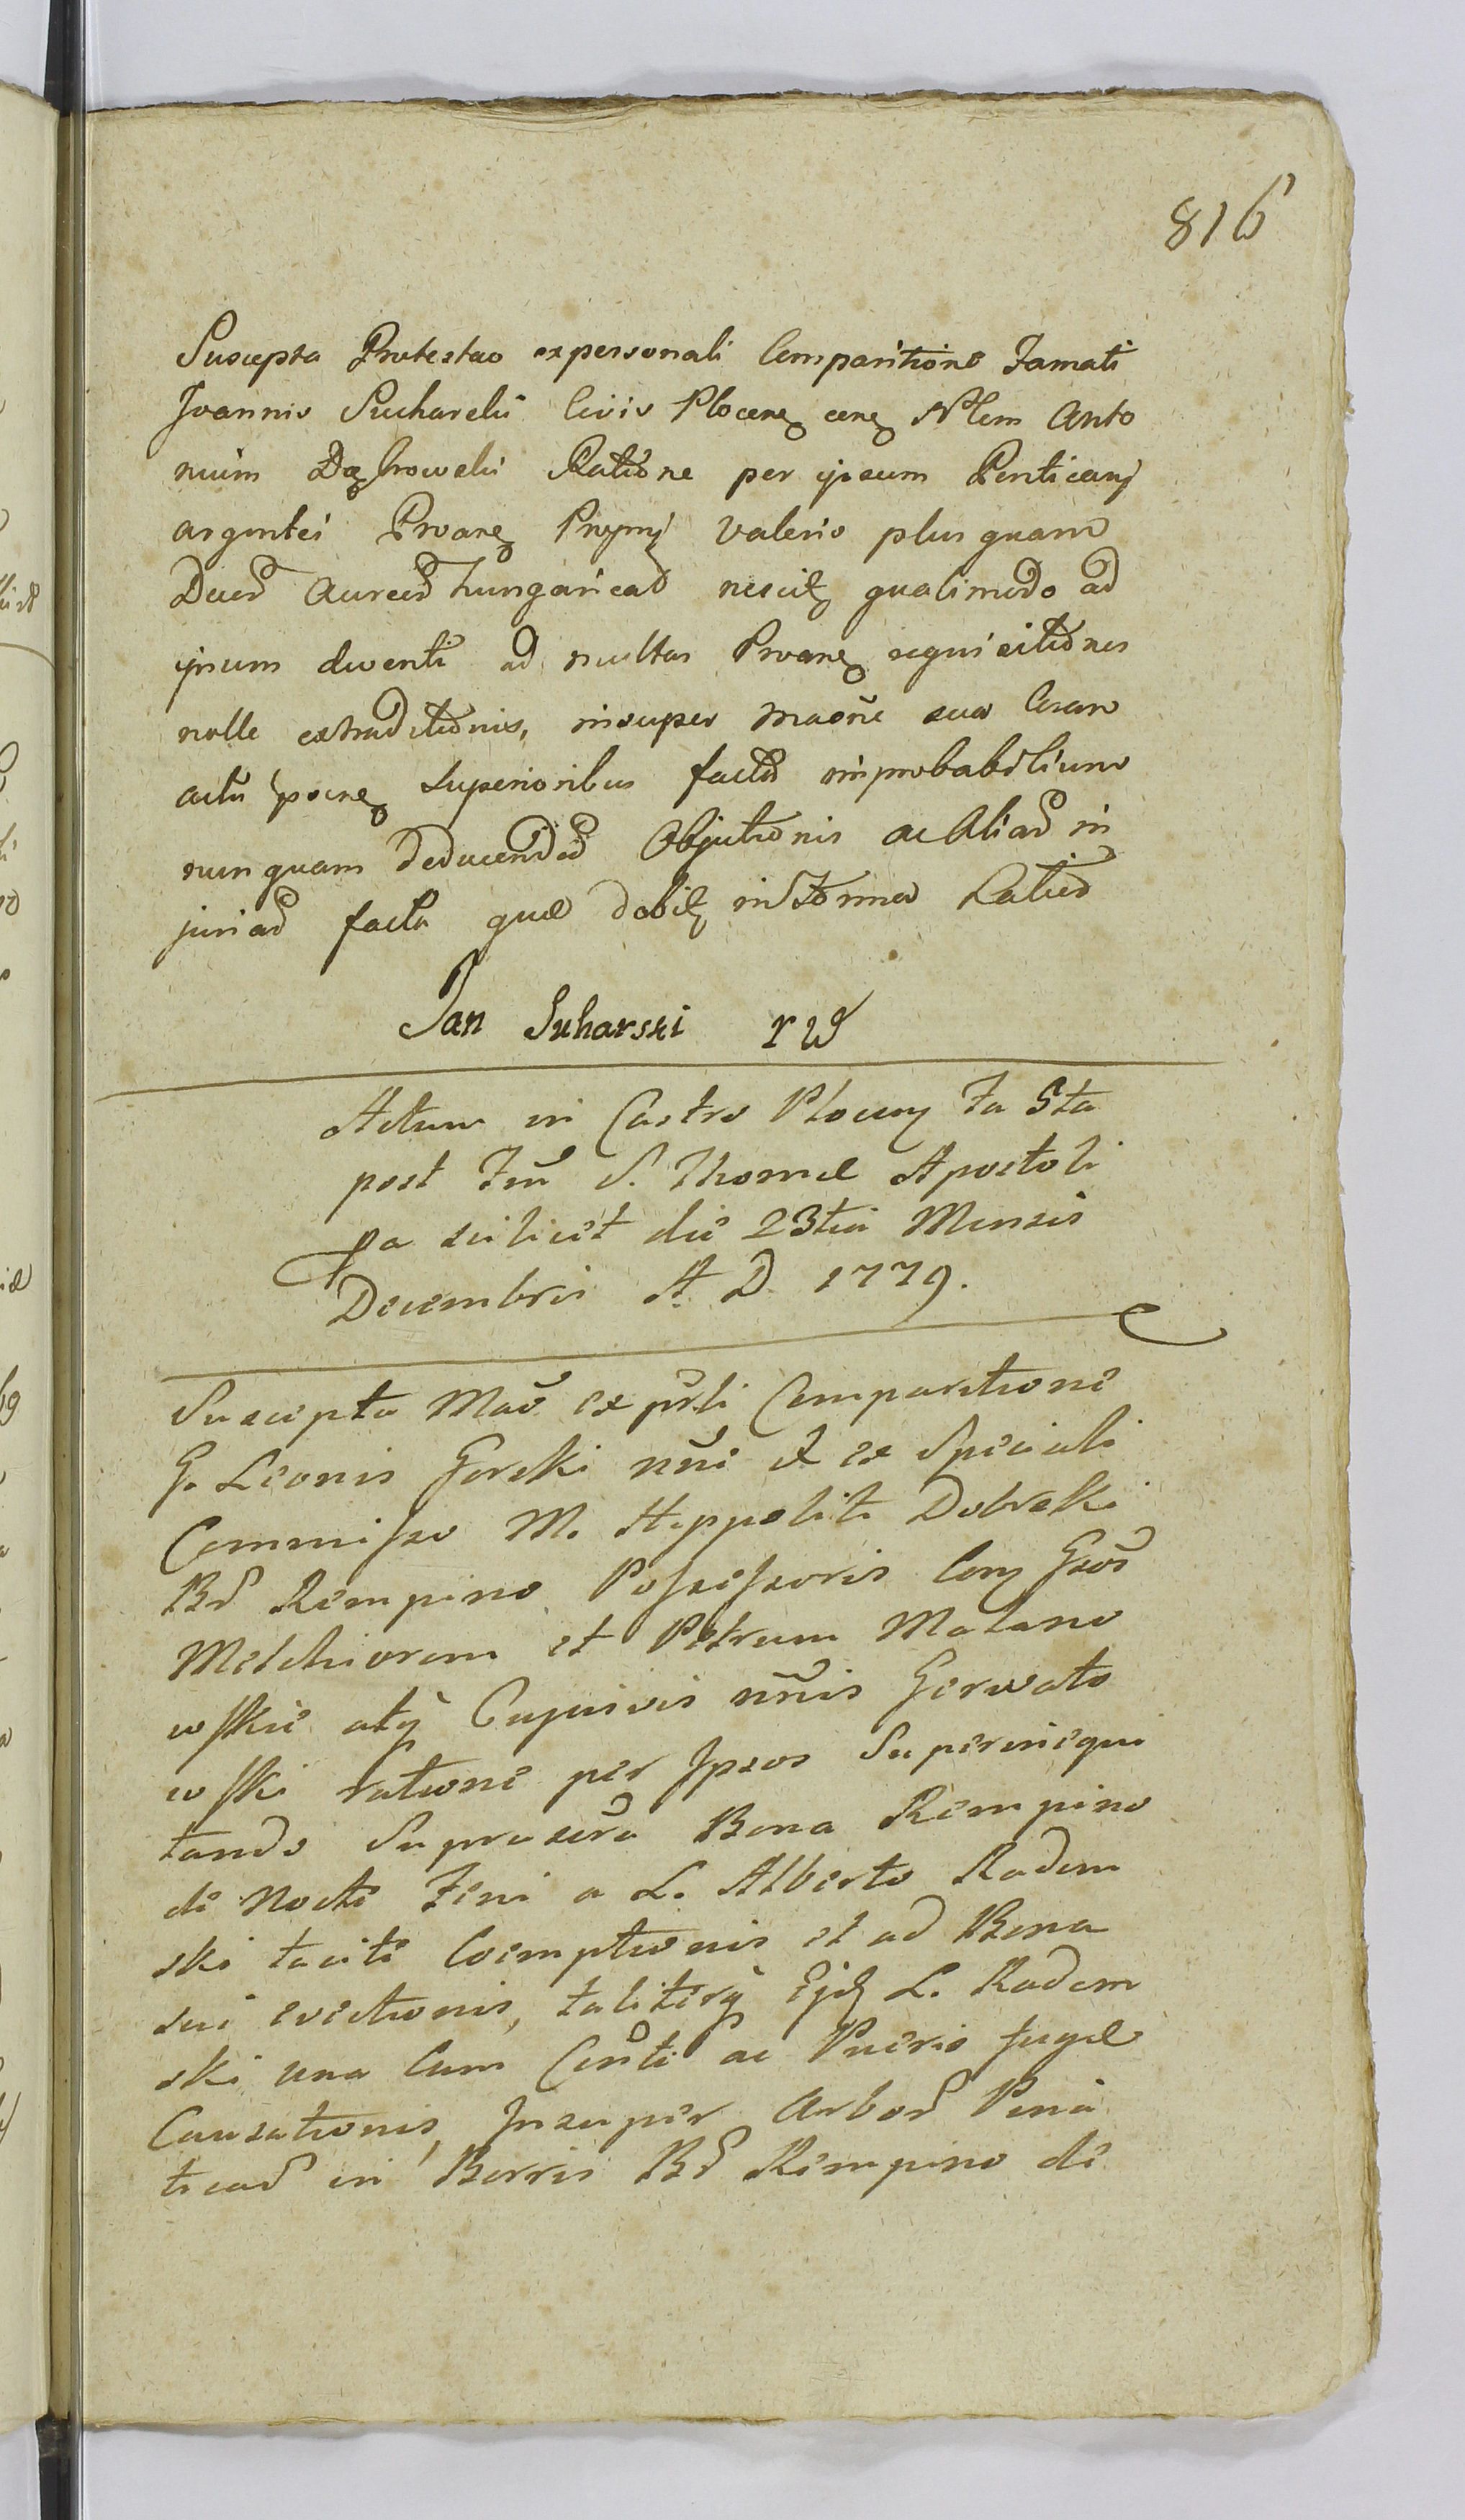 816
Suscepta Protestao ex personali Comparitione Famati
Joannis Sucharski Civis Plocens cons Nlem Anto
nium Dąbrowski Ratione per ipsum Penticarij
argentei Proans Proprij valeris plus quam
Duor Aureor hungarical nescit qualimodo ad
ipsum deventi ad multas Proans requisitiones
nolle extraditionis, insuper maōne sua coram
actis pocns Superioribus facta improbabilium
nunquam deducendor Objectionis ac Aliar in
juriar facta quæ dabit in Forma Latior
Jan Suharski rw
Actum in Castro Plocen Fa 5ta
post Ftū S. Thomæ Apostoli
pa scilicet die 23tia Mensis
Decembris A. D. 1779.
Suscepta Maō ex prli Comparitione
G. Leonis Gorski nñi et ex Speciali
Commisso M. Hippoliti Dobrski
Br Rempino Possessoris Con Gsos
Melchiorem et Petrum Malano
wskie atq Cujusvis nñis Gerwato
wski ratione per Ipsos Superinequi
tando Suprascra Bona Rempino
de Nocte Feni a L. Alberto Radom
ski tacite Coemptionis et ad Bona
sui evectionis, taliterq Ejd L. Radom
ski una Cum Conte ac Pueris fugæ
Causationis, Insuper Arbor Pinia
ticar in Borris Br Rempino de